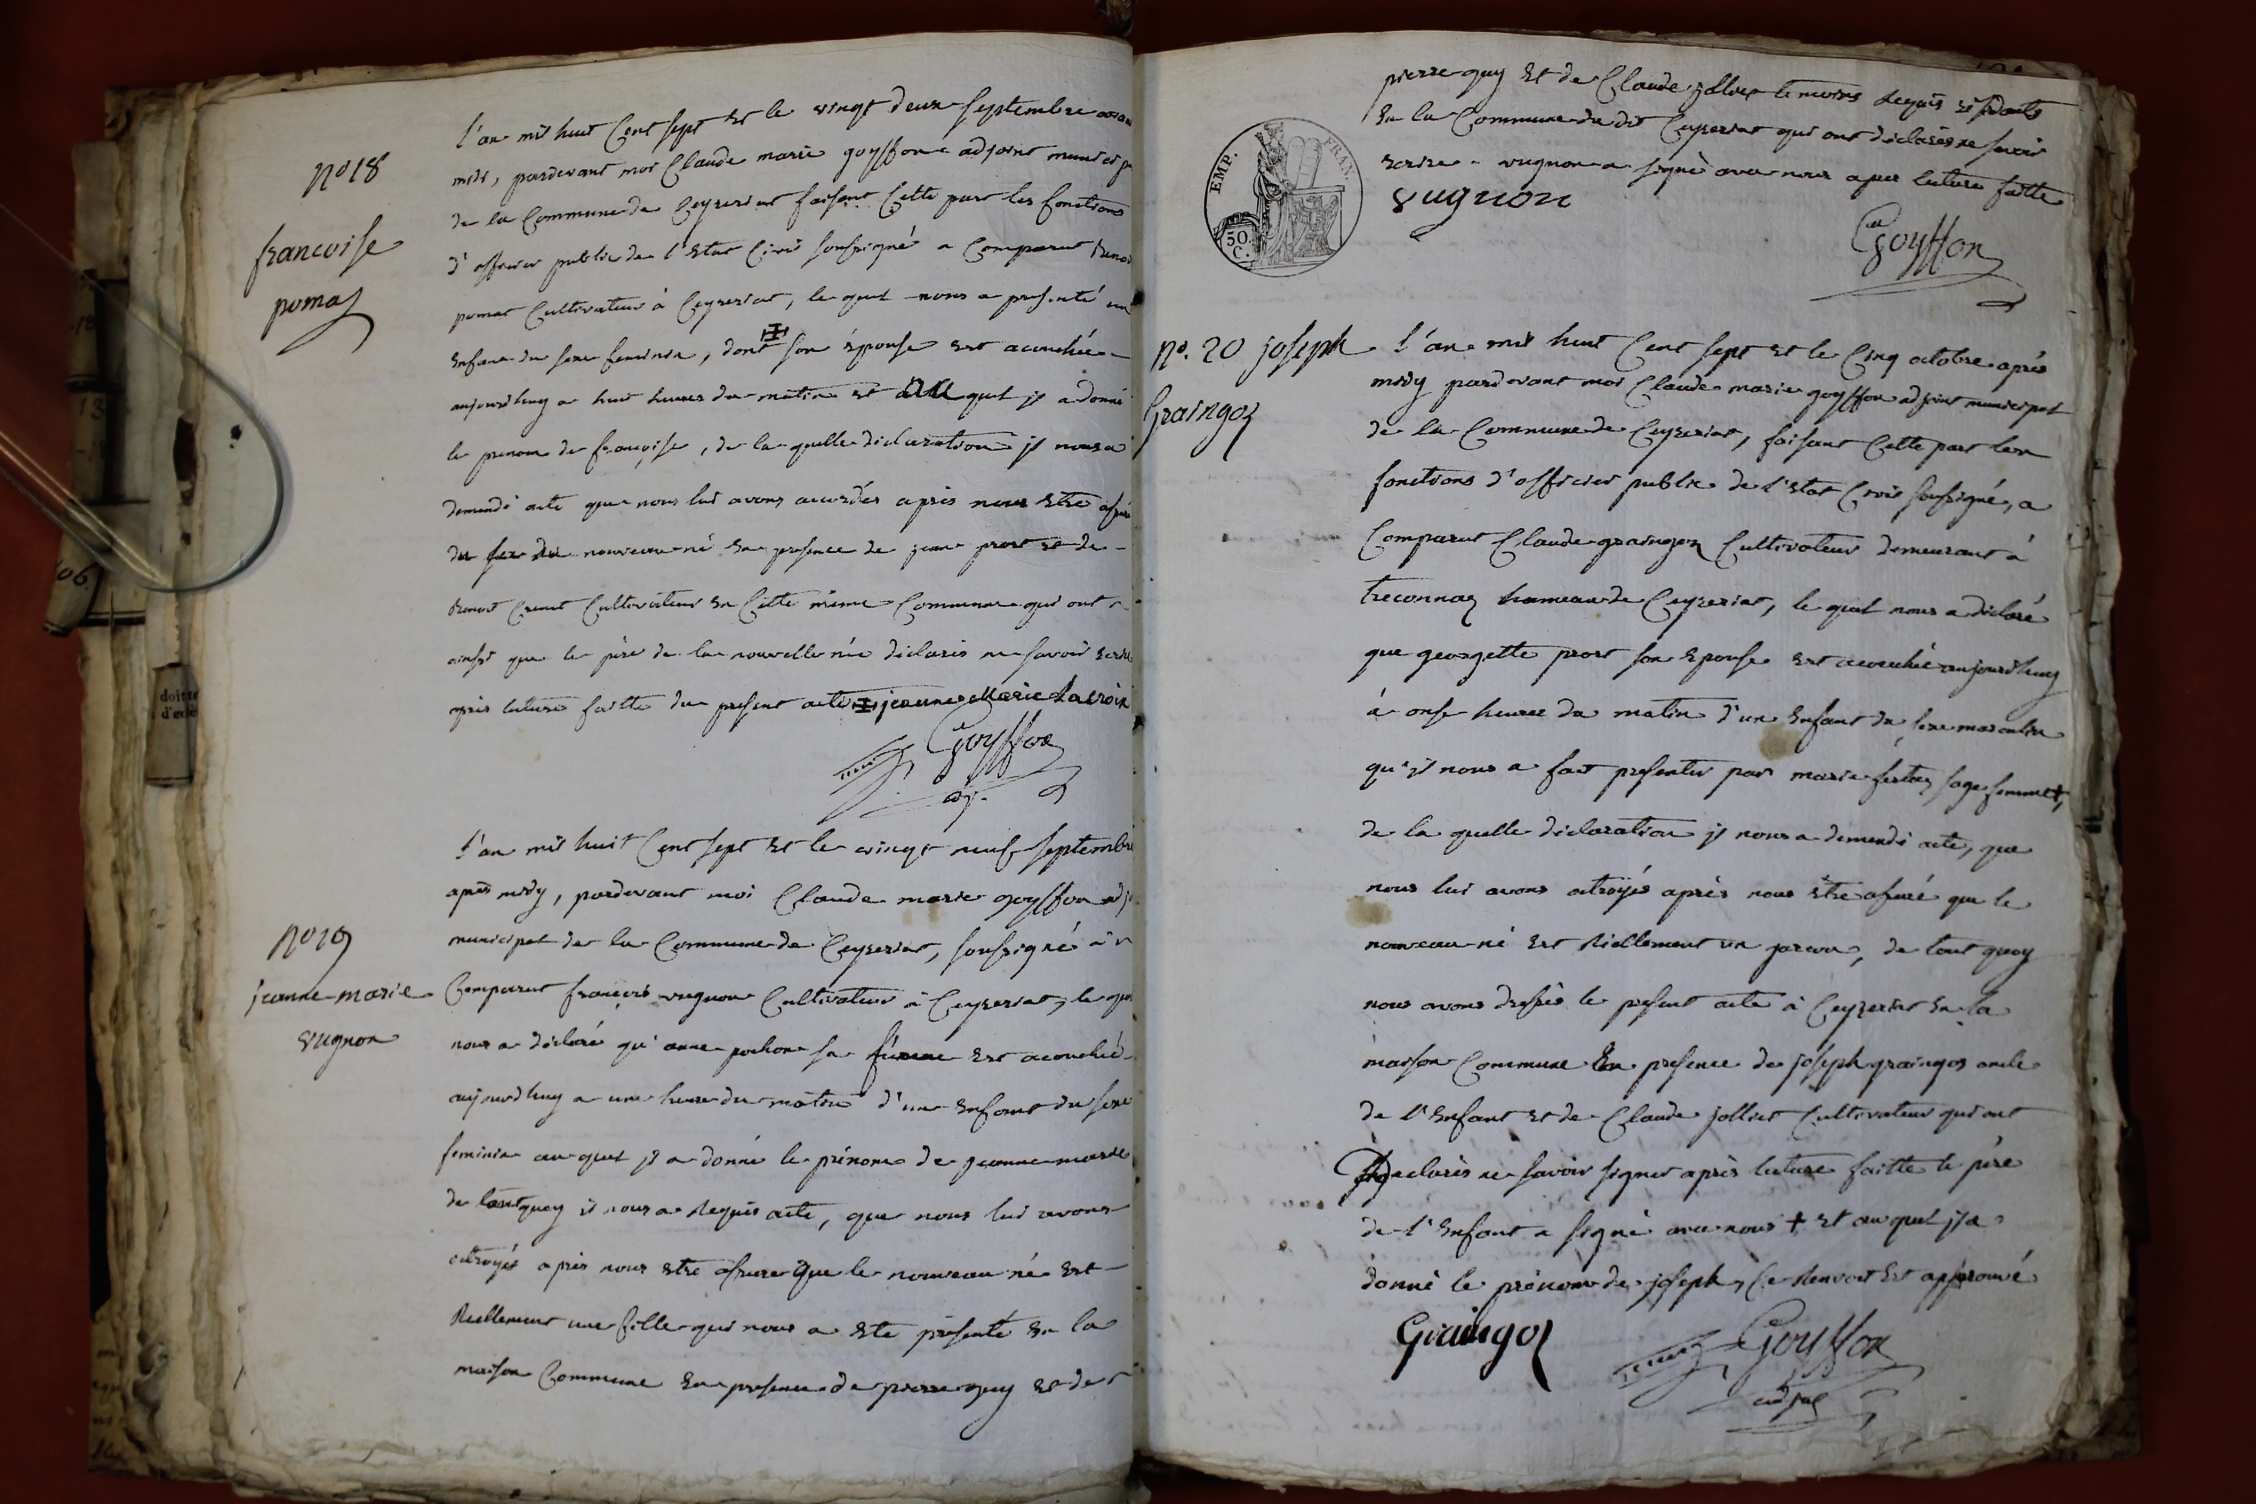 No 18
francoise
pomaz
l'an mil huit Cent sept et le vingt deux septembre avan
midi, pardevant moi Claude marie goyffon adjoint municip
de la Commune de Ceyzeriat faisant Cette part les fonctions
d'officier public de l'Etat Civil soussigné a Comparut Benoi
pomat Cultivateur à Ceyzeriat, le quel nous a presenté un
Enfant du sexe feminin, dont son épouse est acouchée
aujourdhuy a huit heures du matin et au quel jl a donné
le prenom de françoise, de la quelle déclaration jl nous a
demandé acte que nous lui avons accordés après nous être assuré
du sexe du nouveau né En presence de jean prost et de
Benoit Cultivateur En Cette même Commune qui ont
ainsi que le père de la nouvelle née déclarés ne savoir Ecrire
après lecture faitte du present acte jeanne Marie Lacroix
Goyffon
adj.
No 19
jeanne-marie
vugnon
l'an mil huit Cent sept et le vingt neuf septembre
après midy, pardevant moi Claude marie goyffon adj
municipal de la Commune de Ceyzeriat, soussigné à
Comparut françois vugnon Cultivateur à Ceyzeriat, le quel
nous a déclaré qu'anne pochon sa femme est acouchée
aujourdhuy a une heure du matin d'une Enfant du sexe
feminin au quel jl a donné le prénom de jeanne marie
de tout quoy il nous a Requis acte, que nous lui avons
octroyés après nous être assuré que le nouveau né est
Réellement une fille qui nous a été présenté En la
maison Commune En presence de pierre guy et de
pierre guy Et de Claude jollier temoins Requis résidants
En la Commune du dit Ceyzeriat qui ont déclarés ne savoir
Ecrire vugnon a signé avec nous apres lecture faitte
EMP. FRAN.
50.
C.
vugnon
Goyffon
No. 20 joseph
Graingoz
l'an mil huit Cent sept et le Cinq octobre après
midy pardevant moi Claude marie goyffon adjoint municipal
de la Commune de Ceyzeriat, faisant Cette part les
fonctions d'officier public de l'Etat Civil soussigné, a
Comparut Claude graingoz Cultivateur demeurant à
treconnaz hameau de Ceyzeriat, le quel nous a déclaré
que georgette prost son Epouse est acouchée aujourdhuy
à onse heures du matin d'un Enfant du sexe masculin
qu'il nous a fait presenter par marie sage femme +,
de la quelle déclaration jl nous a demandé acte, que
nous lui avons octroyés après nous être assuré que le
nouveau né est Réellement un garcon, de tout quoy
nous avons dressés le present acte à Ceyzeriat En la
maison Commune En presence de joseph graingoz oncle
de l'Enfant et de Claude jolliet Cultivateur qui ont
Declarés ne savoir signer après lecture faitte le père
de l'Enfant a signé avec nous + et au quel jl a
donné le prénom de joseph, Ce Renvoit est approuvé
Graingoz
Goyffon